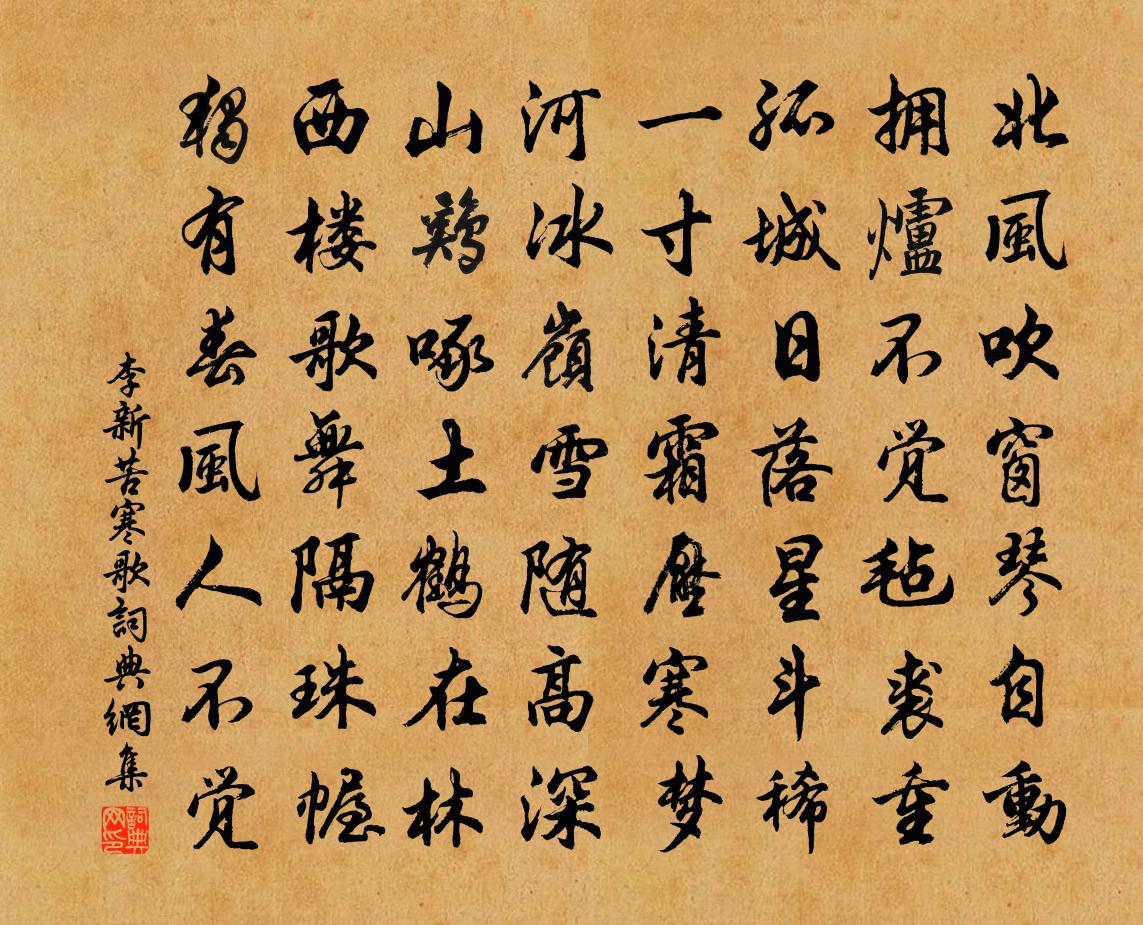 北風吹窗琴自動
拥爐不觉毡裘重
孤城日落星斗稀
一寸清霜壓寒梦
河冰嶺雪随高深
山鷄啄土鶴在林
西楼歌舞隔珠幄
独有春風人不觉
李新苦寒歌詞典網集
詞典網印